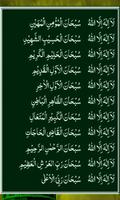 لَآ اِلٰهَ اِلَّا اللهُ سُبْحَانَ الْمُؤْمِنِ الْمُهَيْمِنِ
لَآ اِلٰهَ اِلَّا اللهُ سُبْحَانَ الْحَسِيْبِ الشَّهِيْدِ
لَآ اِلٰهَ اِلَّا اللهُ سُبْحَانَ الْحَلِيْمِ الْكَرِيْمِ
لَآ اِلٰهَ اِلَّا اللهُ سُبْحَانَ الْاَوَّلِ الْقَدِيْمِ
لَآ اِلٰهَ اِلَّا اللهُ سُبْحَانَ الْاَوَّلِ الْاٰخِرِ
لَآ اِلٰهَ اِلَّا اللهُ سُبْحَانَ الظَّاهِرِ الْبَاطِنِ
لَآ اِلٰهَ اِلَّا اللهُ سُبْحَانَ الْكَبِيْرِ الْمُتَعَالِ
لَآ اِلٰهَ اِلَّا اللهُ سُبْحَانَ الْقَاضِى الْحَاجَاتِ
لَآ اِلٰهَ اِلَّا اللهُ سُبْحَانَ الرَّحْمٰنِ الرَّحِيْمِ
لَآ اِلٰهَ اِلَّا اللهُ سُبْحَانَ رَبِّ الْعَرْشِ الْعَظِيْمِ
لَآ اِلٰهَ اِلَّا اللهُ سُبْحَانَ رَبِّىَ الْاَعْلٰى